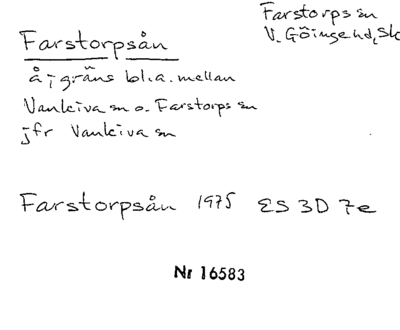 Farstorps sn
V. Göinge hd, Sk
Farstorpsån
å i gräns bl.a. mellan
Vankiva sn o. Farstorps sn
jfr Vankiva sn
Farstorpsån 1975 ES 3D 7e
Nr 16583